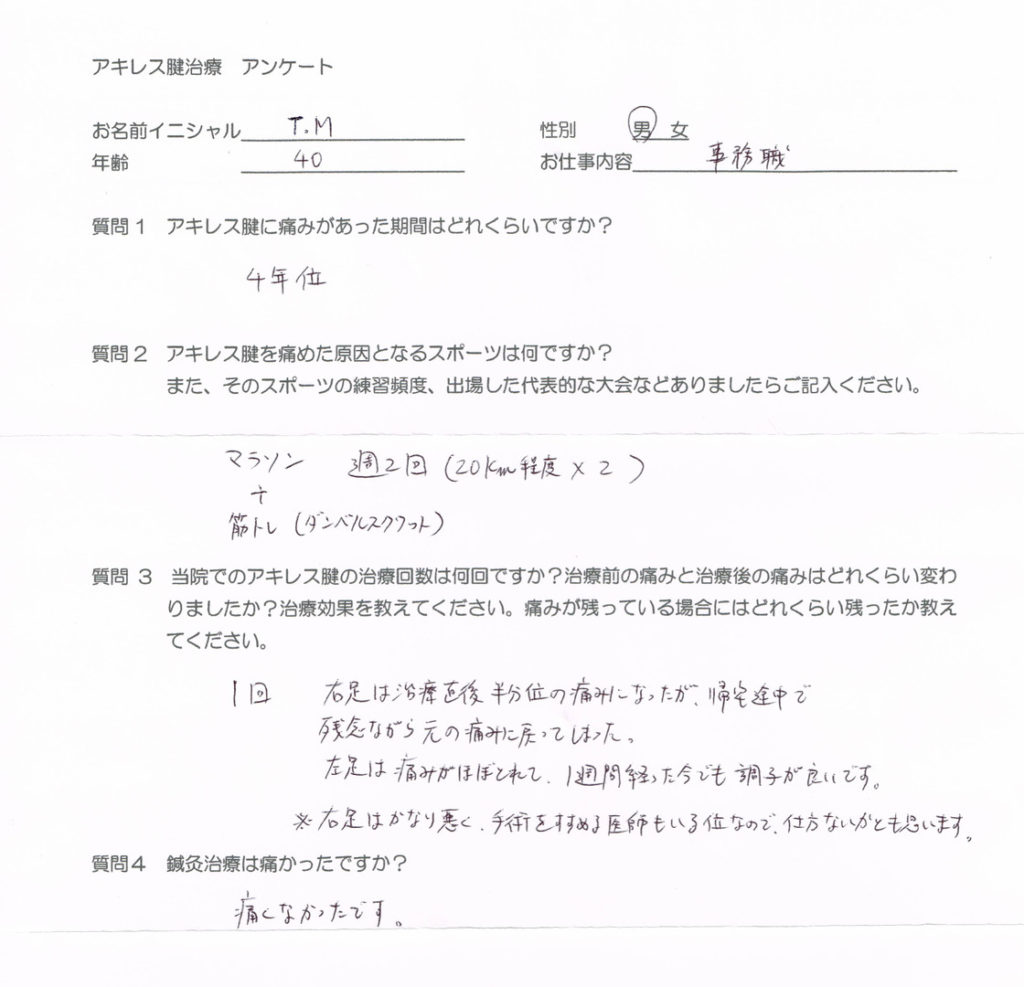 アキレス腱治療　アンケート
お名前イニシャル T.M　性別　男　女
年齢 40　お仕事内容 事務職
質問1　アキレス腱に痛みがあった期間はどれくらいですか？
4年位
質問2　アキレス腱を痛めた原因となるスポーツは何ですか？
また、そのスポーツの練習頻度、出場した代表的な大会などありましたらご記入ください。
マラソン　週2回（20km程度×2）
+
筋トレ（ダンベルスクワット）
質問3　当院でのアキレス腱の治療回数は何回ですか？治療前の痛みと治療後の痛みはどれくらい変わ
りましたか？治療効果を教えてください。痛みが残っている場合にはどれくらい残ったか教え
てください。
1回　右足は治療直後半分位の痛みになったが、帰宅途中で
残念ながら元の痛みに戻ってしまった。
左足は痛みがほぼとれて、1週間経った今でも調子が良いです。
※右足はかなり悪く、手術をすすめる医師もいる位なので、仕方ないかとも思います。
質問4　鍼灸治療は痛かったですか？
痛くなかったです。